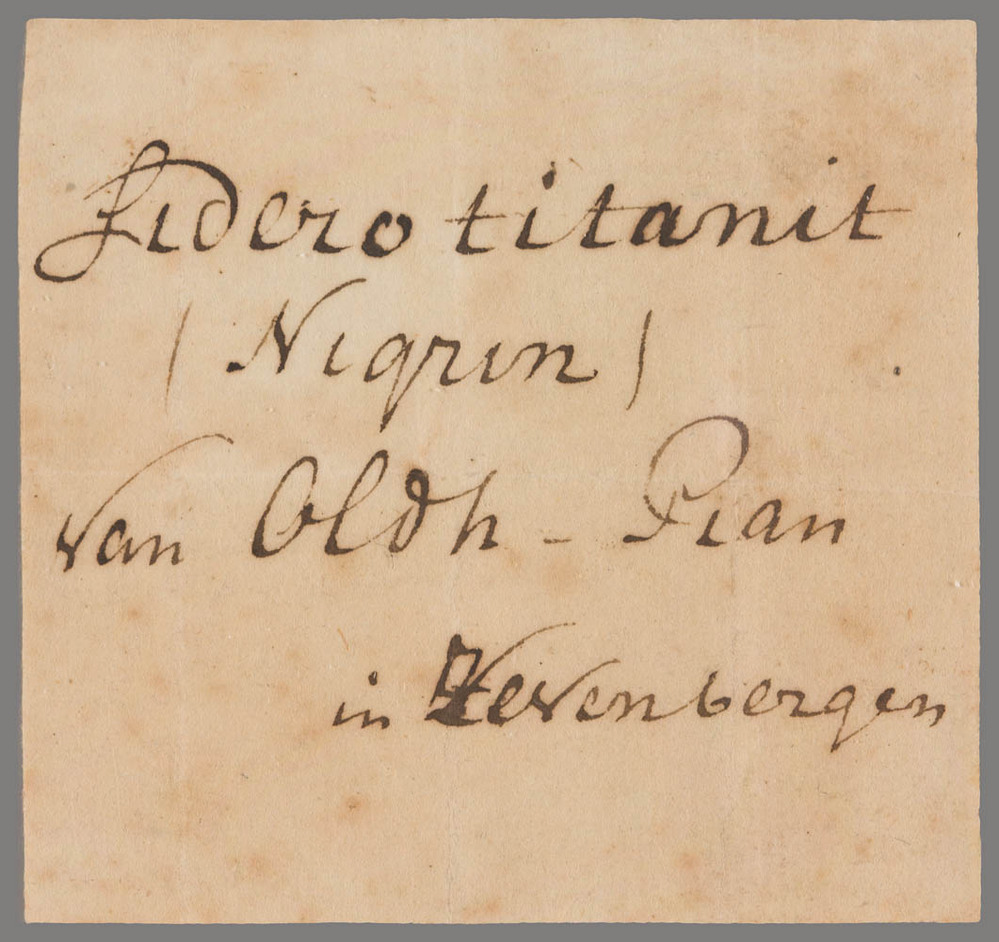 Siderotitanit
(Nigrin)
van Oldh-Pian
in Zevenbergen